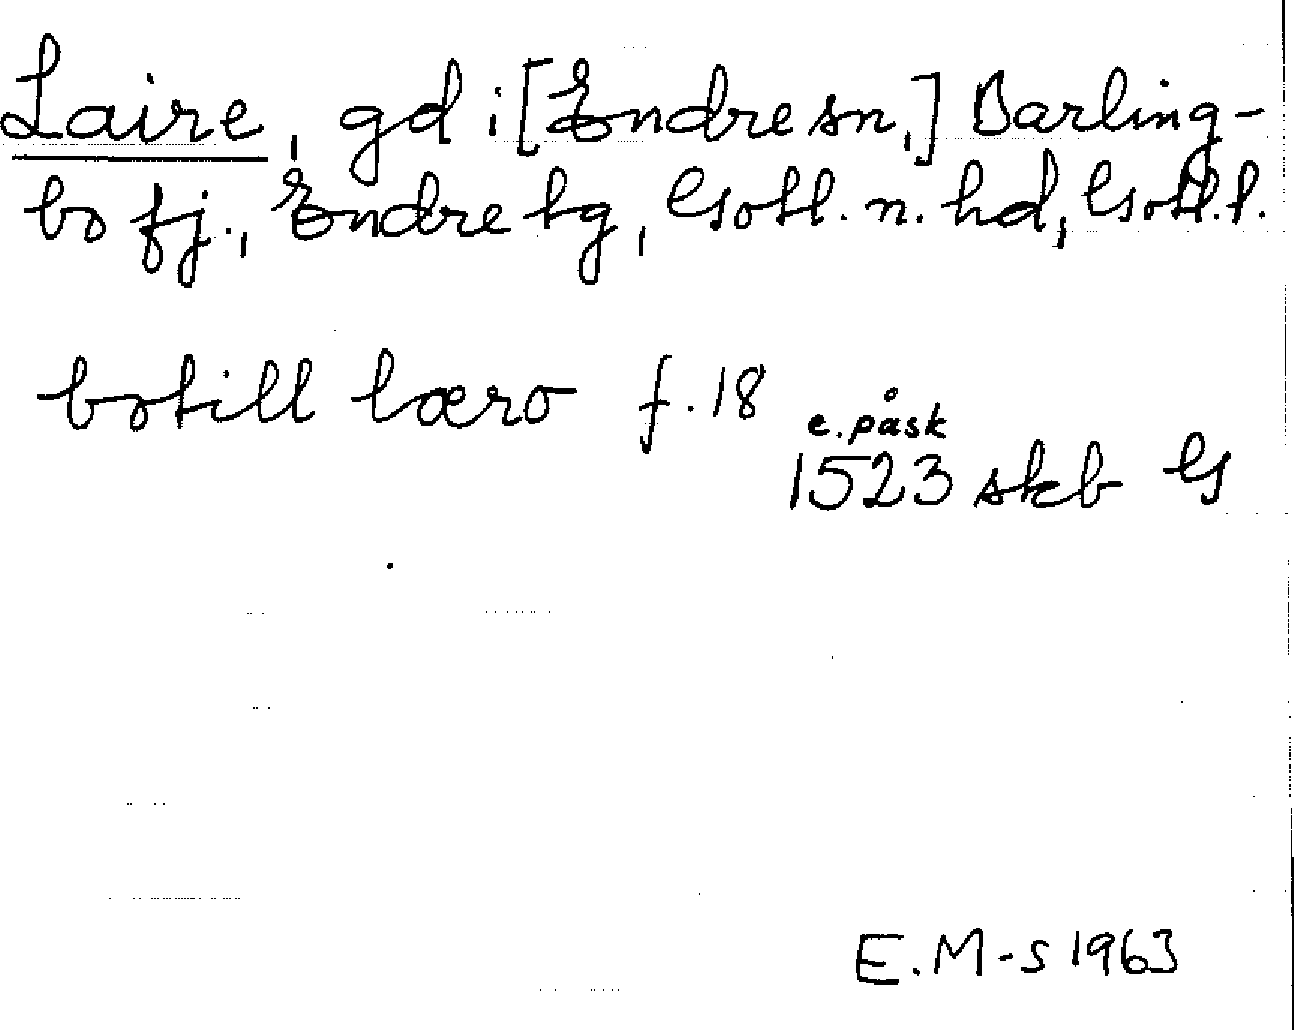 Laire, gd i [Endre sn,] Barling-
bo fj., Endre tg, Gotl. n. hd, Gotl. l.
botill læro f. 18
e. påsk
1523 skb G
E. M-s 1963